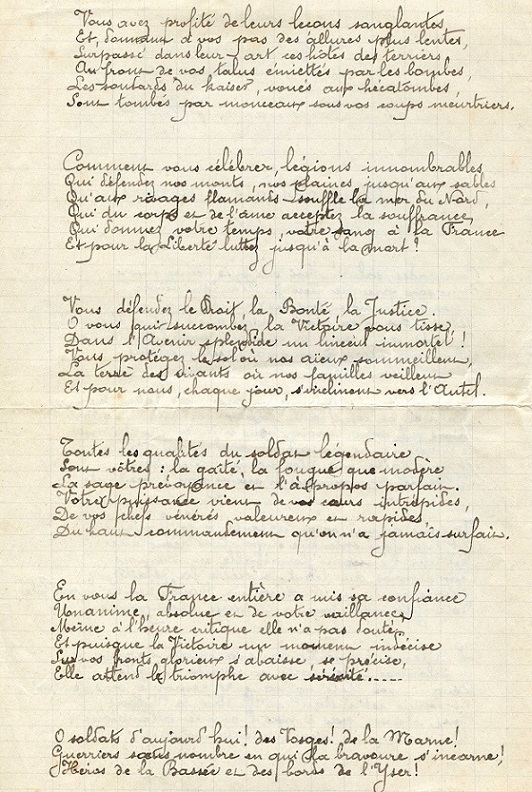 Vous avez profité de leurs leçons sanglantes,
Et, donnant à vos pas des allures plus lentes,
Surpassé dans leur art ces hôtes des terriers,
Au front de vos talus émiettés par les bombes,
Les soudards du kaiser, voués aux hécatombes,
Sont tombés par monceaux sous vos coups meurtriers.
Comment vous célébrer, légions innombrables,
Qui défendez nos monts, nos plaines jusqu'aux sables
Qu'aux rivages flamands souffle la mer du Nord,
Qui du corps et de l'âme acceptez la souffrance,
Qui donnez votre temps, votre sang à la France
Et pour la Liberté luttez jusqu'à la mort !
Vous défendez le Droit, la Bonté, la Justice.
O vous qui succombez, la Victoire vous tisse,
Dans l'Avenir splendide un linceul immortel !
Vous protégez le sol où nos aïeux sommeillent,
La terre des vivants où nos familles veillent
Et pour nous, chaque jour, s'inclinent vers l'Autel.
Toutes les qualités du soldat légendaire
Sont vôtres : la gaîté, la fougue que modère
La sage prévoyance et l'à-propos parfait.
Votre puissance vient de vos cœurs intrépides,
De vos chefs vénérés valeureux et rapides
Du haut commandement qu'on n'a jamais surfait.
En vous la France entière a mis sa confiance
Unanime, absolue et de votre vaillance,
Même à l'heure critique elle n'a pas douté,
Et puisque la Victoire un moment indécise
Sur vos fronts glorieux s'abaisse, se précise,
Elle attend le triomphe avec sérénité.....
O soldats d'aujourd'hui! des Vosges! de la Marne!
Guerriers sans nombre en qui la bravoure s'incarne!
Héros de la Bassée et des bords de l'Yser!